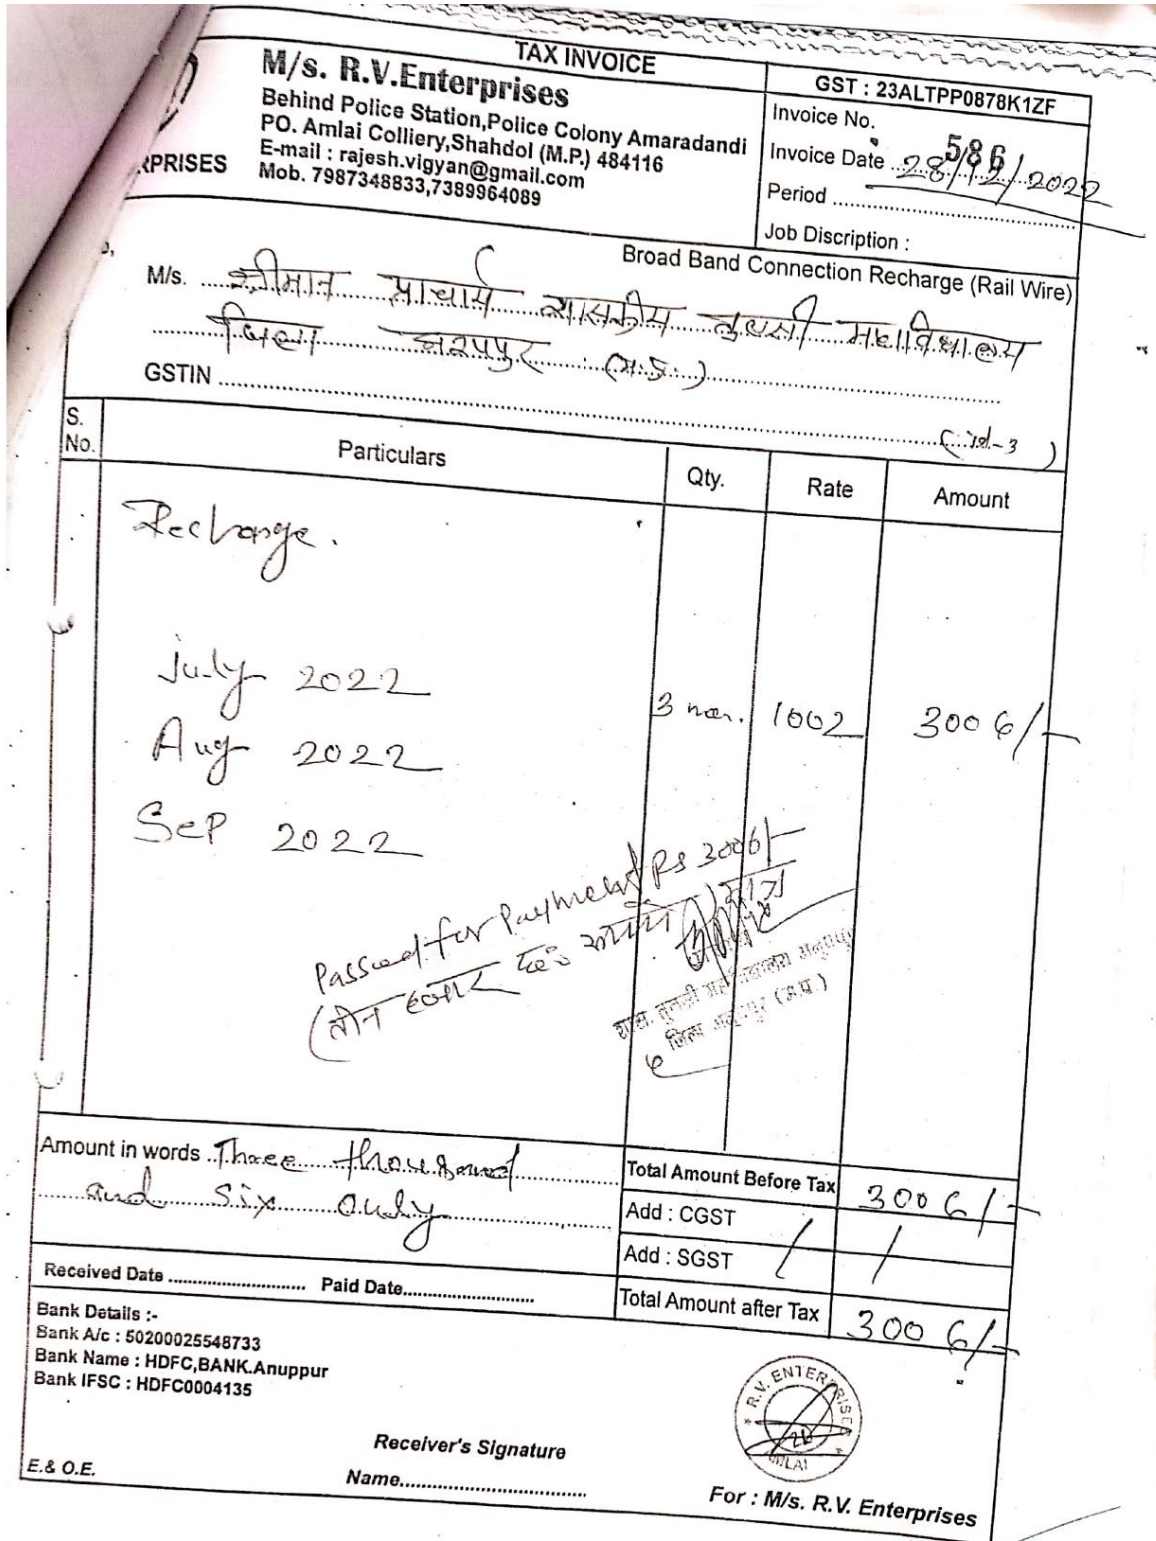 TAX INVOICE
M/s. R.V.Enterprises
Behind Police Station,Police Colony Amaradandi
PO. Amlai Colliery,Shahdol (M.P.) 484116
E-mail : rajesh.vigyan@gmail.com
Mob. 7987348833,7389964089
RPRISES
GST : 23ALTPP0878K1ZF
Invoice No. 586
Invoice Date 28/12/2022
Period
Job Discription :
Broad Band Connection Recharge (Rail Wire)
M/s. श्रीमान प्राचार्य शासकीय तुलसी महाविद्यालय
जिला (म.प्र.)
GSTIN
S. No. Particulars Qty. Rate Amount
Recharge.
July 2022
3 1002 3006/-
Aug 2022
Sep 2022
Passed for Payment Rs 3006/-
(तीन हजार मात्र
शास. तुलसी महाविद्यालय अनूपपुर
जिला अनूपपुर (म.प्र.)
Amount in words Three thousand
and six only
Total Amount Before Tax 3006/-
Add : CGST /
Add : SGST /
Total Amount after Tax 3006/-
Received Date Paid Date
Bank Details :-
Bank A/c : 50200025548733
Bank Name : HDFC,BANK.Anuppur
Bank IFSC : HDFC0004135
R.V. ENTERPRISES
AMLAI
Receiver's Signature
Name
E.& O.E.
For : M/s. R.V. Enterprises